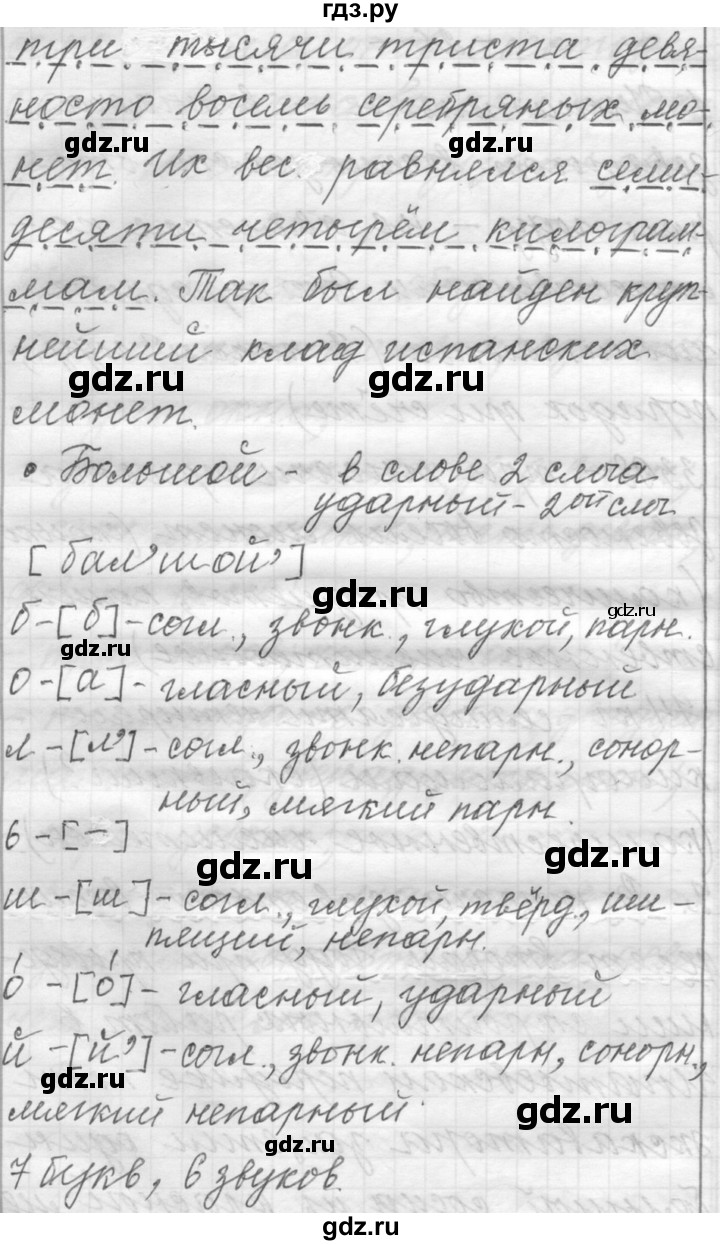 гдз.ру
три тысячи триста девя-
носто восемь серебряных мо-
gdz.ru gdz.ru
нет. Их вес равнялся семи-
десяти четырём килограм-
мам. Так был найден круп-
нейший клад испанских
gdz.ru gdz.ru
монет.
• Большой - в слове 2 слога
ударный - 2ой слог
[бал’шой’]
gdz.ru gdz.ru
б-[б]-согл., звонк., глухой, парн.
gdz.ru
о-[а]-гласный, безударный
л-[л’]-согл., звонк. непарн., сонор-
ный, мягкий парн.
ь-[-]
gdz.ru gdz.ru
ш-[ш]-согл., глухой, твёрд., ши-
пящий, непарн.
о́-[о́]-гласный, ударный
й-[й’]-согл., звонк. непарн, сонорн.,
gdz.ru
мягкий непарный.
gdz.ru
7 букв, 6 звуков.
gdz.ru